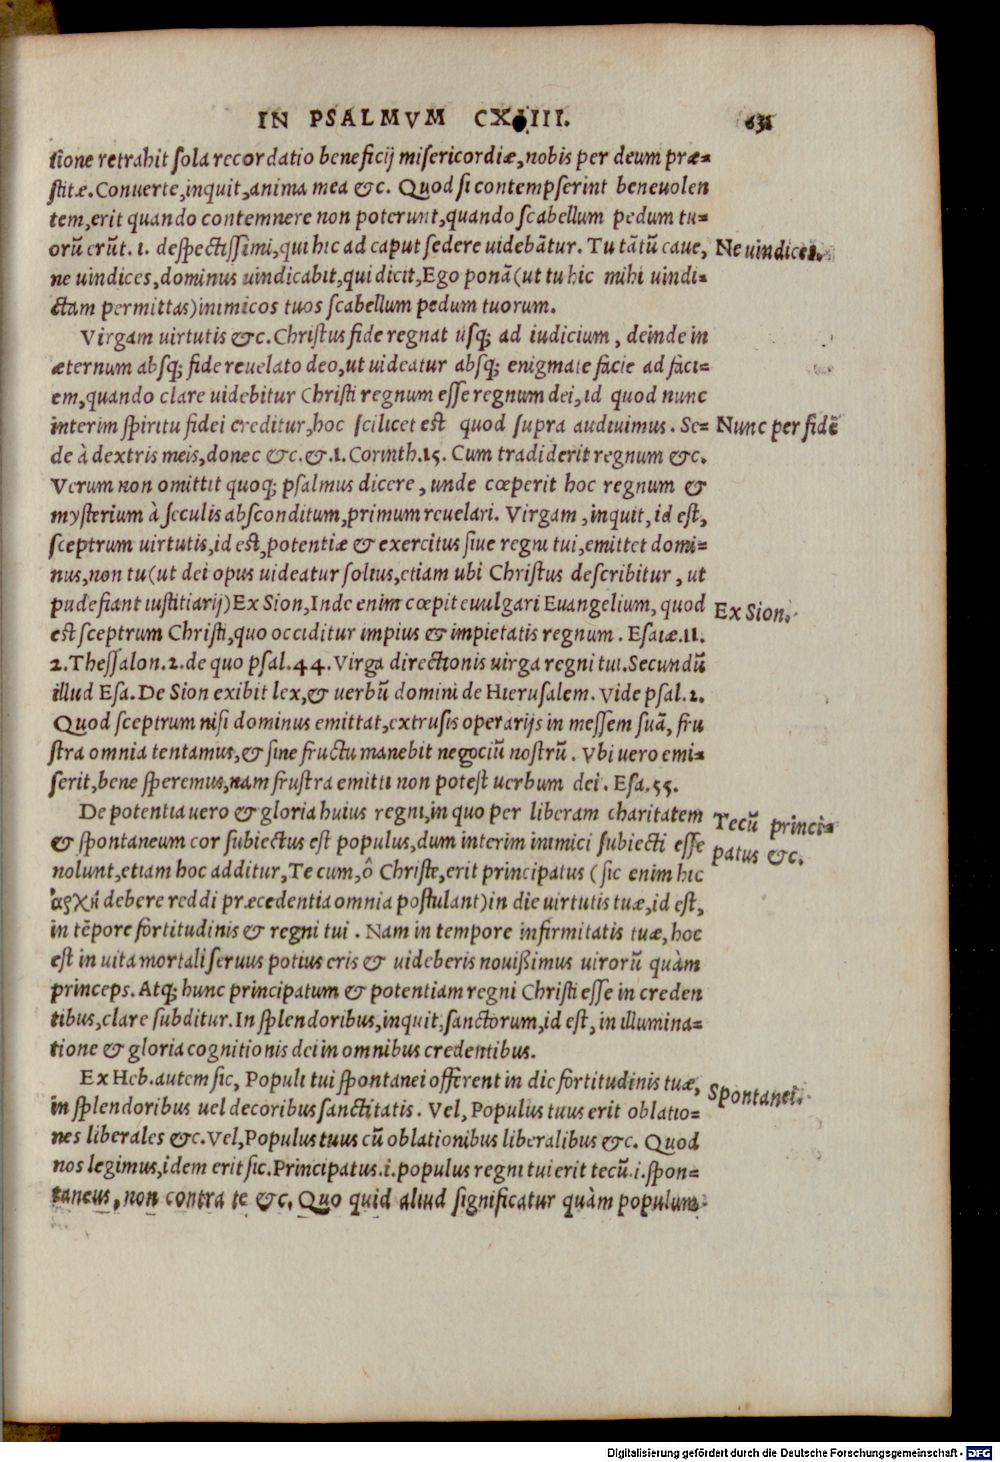 IN PSALMVM CX IIII. 631
tione retrahit sola recordatio beneficij misericordiæ, nobis per deum præ=
stitæ. Conuerte, inquit, anima mea &c. Quod si contempserint beneuolen
tem, erit quando contemnere non poterunt, quando scabellum pedum tu=
orũ erũt. i. despectissimi, qui hic ad caput sedere uidebãtur. Tu tãtũ caue, Ne uindices.
ne uindices, dominus uindicabit, qui dicit, Ego ponã (ut tu hic mihi uindi=
ctam permittas) inimicos tuos scabellum pedum tuorum.
Virgam uirtutis &c. Christus fide regnat usq; ad iudicium, deinde in
æternum absq; fide reuelato deo, ut uideatur absq; enigmate facie ad faci=
em, quando clare uidebitur Christi regnum esse regnum dei, id quod nunc
interim spiritu fidei creditur, hoc scilicet est quod supra audiuimus. Se= Nunc per fidẽ
de à dextris meis, donec &c. &. 1. Corinth. 15. Cum tradiderit regnum &c.
Verum non omittit quoq; psalmus dicere, unde cœperit hoc regnum &
mysterium à seculis absconditum, primum reuelari. Virgam, inquit, id est,
sceptrum uirtutis, id est, potentiæ & exercitus siue regni tui, emittet domi=
nus, non tu (ut dei opus uideatur solius, etiam ubi Christus describitur, ut
pudefiant iustitiarij) Ex Sion, Inde enim cœpit euulgari Euangelium, quod Ex Sion.
est sceptrum Christi, quo occiditur impius & impietatis regnum. Esaiæ. 11.
2. Thessalon. 2. de quo psal. 44. Virga directionis uirga regni tui. Secundũ
illud Esa. De Sion exibit lex, & uerbũ domini de Hierusalem. Vide psal. 2.
Quod sceptrum nisi dominus emittat, extrusis operarijs in messem suã, fru
stra omnia tentamus, & sine fructu manebit negociũ nostrũ. Vbi uero emi=
serit, bene speremus, nam frustra emitti non potest uerbum dei. Esa. 55.
De potentia uero & gloria huius regni, in quo per liberam charitatem Tecũ princi=
& spontaneum cor subiectus est populus, dum interim inimici subiecti esse patus &c.
nolunt, etiam hoc additur, Te cum, ô Christe, erit principatus (sic enim hic
ἀρχὴ debere reddi præcedentia omnia postulant) in die uirtutis tuæ, id est,
in tẽpore fortitudinis & regni tui. Nam in tempore infirmitatis tuæ, hoc
est in uita mortali seruus potius eris & uideberis nouißimus uirorũ quàm
princeps. Atq; hunc principatum & potentiam regni Christi esse in creden
tibus, clare subditur. In splendoribus, inquit, sanctorum, id est, in illumina=
tione & gloria cognitionis dei in omnibus credentibus.
Ex Heb. autem sic, Populi tui spontanei offerent in die fortitudinis tuæ, Spontanei.
in splendoribus uel decoribus sanctitatis. Vel, Populus tuus erit oblatio=
nes liberales &c. Vel, Populus tuus cũ oblationibus liberalibus &c. Quod
nos legimus, idem erit sic. Principatus. i. populus regni tui erit tecũ. i. spon=
taneus, non contra te &c. Quo quid aliud significatur quàm populum
Digitalisierung gefördert durch die Deutsche Forschungsgemeinschaft - DFG